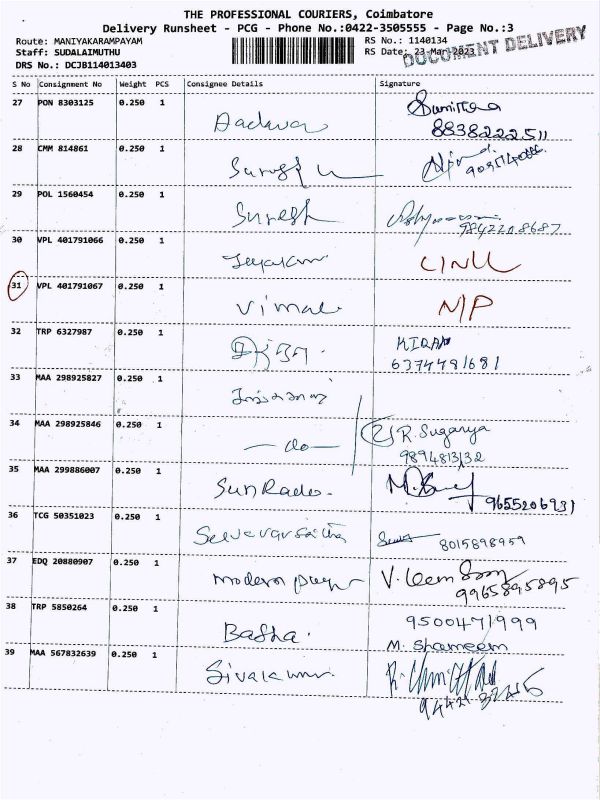 THE PROFESSIONAL COURIERS, Coimbatore
Delivery Runsheet - PCG - Phone No.:0422-3505555 - Page No.:3
Route: MANIYAKARAMPAYAM
RS No.: 1140134
Staff: SUDALAIMUTHU
RS Date: 23-Mar-2023
DOCUMENT DELIVERY
DRS No.: DCJB114013403
S No Consignment No Weight PCS Consignee Details Signature
27 PON 8303125 0.250 1
8838222511
28 CMM 814861 0.250 1
29 POL 1560454 0.250 1
Suresh
9842208687
30 VPL 401791066 0.250 1
Jeyakumar
31 VPL 401791067 0.250 1
Vimal N/P
32 TRP 6327987 0.250 1
KIRAN
6374491681
33 MAA 298925827 0.250 1
34 MAA 298925846 0.250 1
— do — R. Suganya
9894813132
35 MAA 299886007 0.250 1
9655206931
36 TCG 50351023 0.250 1
8015898959
37 EDQ 20880907 0.250 1
modern
9965895895
38 TRP 5850264 0.250 1
Basha. 9500471999
M. Shameem
39 MAA 567832639 0.250 1
Sivakumar